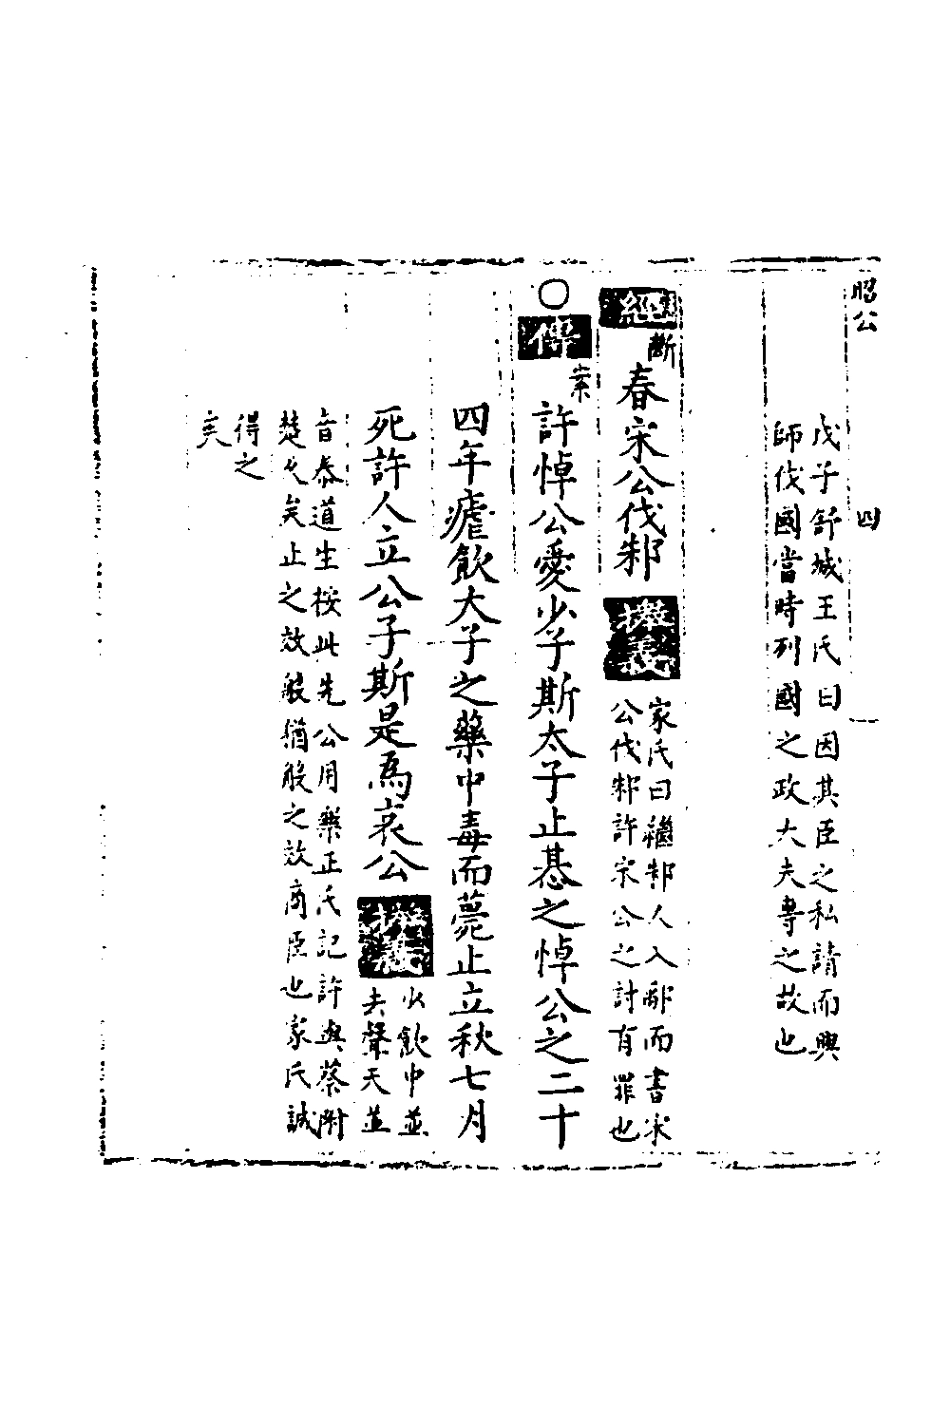 昭公 四
戊子舒城王氏曰因其臣之私請而興
師伐國當時列國之政大夫專之故也
經斷春宋公伐邾撮義
家氏曰繼邾人入鄅而書宋
公伐邾許宋公之討有罪也
○傳案許悼公愛少子斯太子止惎之悼公之二十
四年瘧飲大子之藥中毒而薨止立秋七月
死許人立公子斯是為哀公撮義
少飲中並
去聲天並
音泰道生按此先公用樂正氏記許與蔡附
楚久矣止之效般猶般之效商臣也家氏誠
得之
矣